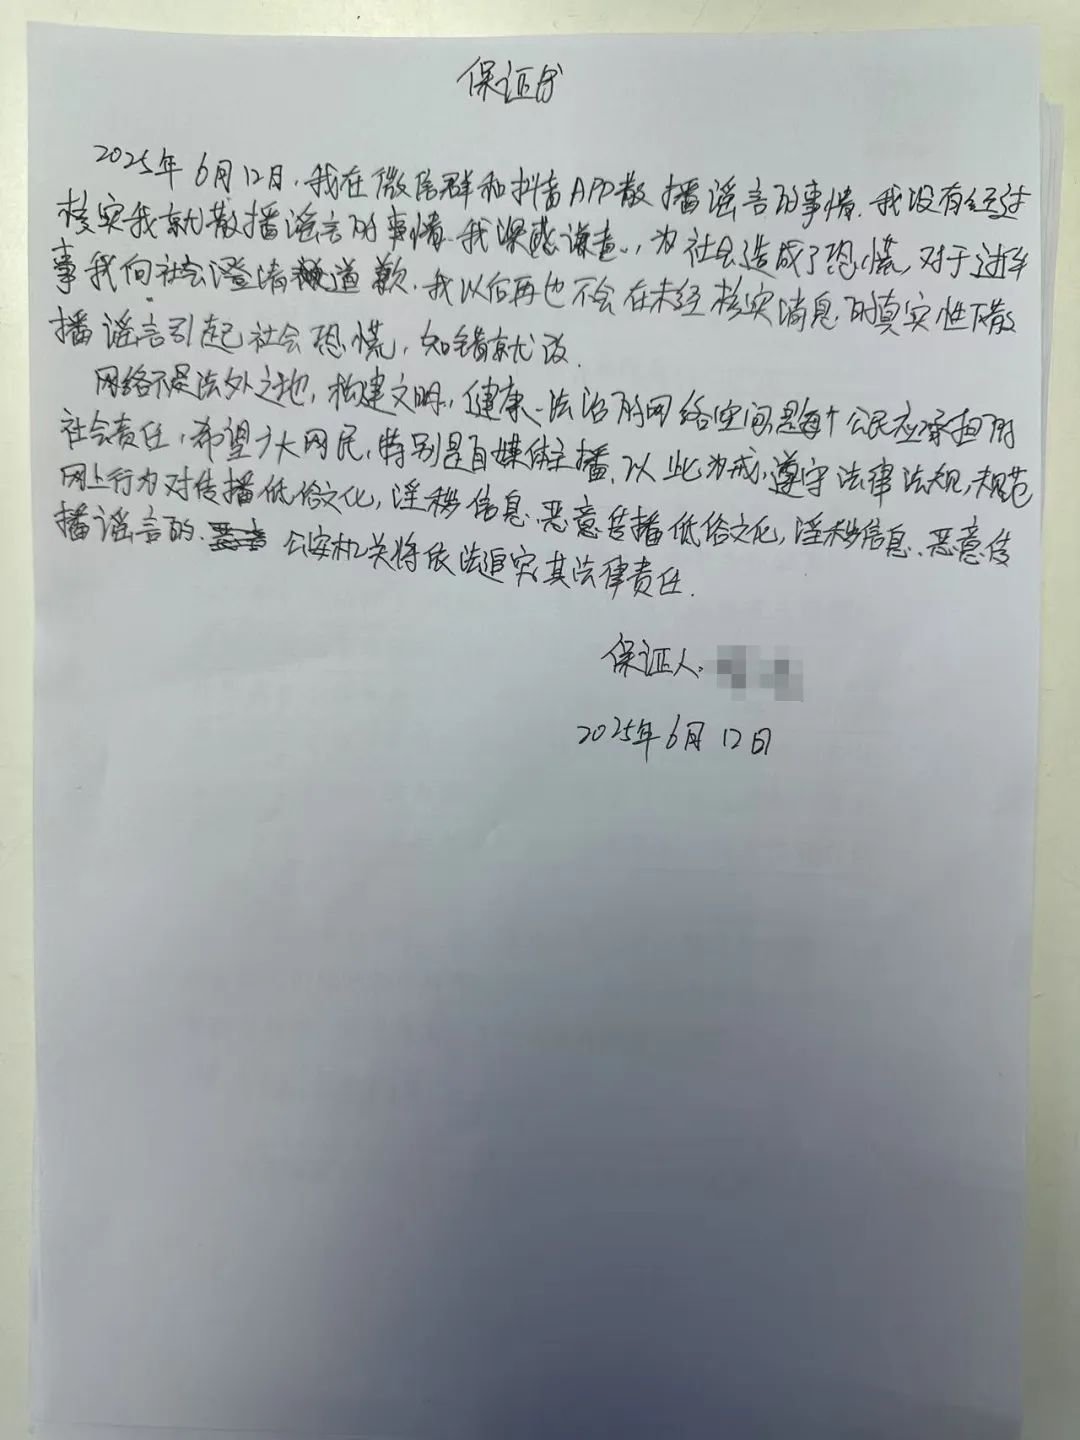 保证书
2025年6月12日，我在微信群和抖音APP散播谣言的事情.我没有经过
核实我就散播谣言的事情.我深感谦意.，为社会造成了恐慌，对于这件
事我向社会澄清道歉.我以后再也不会在未经核实消息的真实性下散
播谣言引起社会恐慌，知错就改.
网络不是法外之地，构建文明.，健康、法治的网络空间是每个公民应承担的
社会责任，希望广大网民，特别是自媒体主播.以此为戒，遵守法律法规，规范
网上行为对传播低俗文化，淫秽信息.恶意传播低俗文化，淫秽信息、恶意传
播谣言的.公安机关将依法追究其法律责任.
保证人.
2025年6月12日